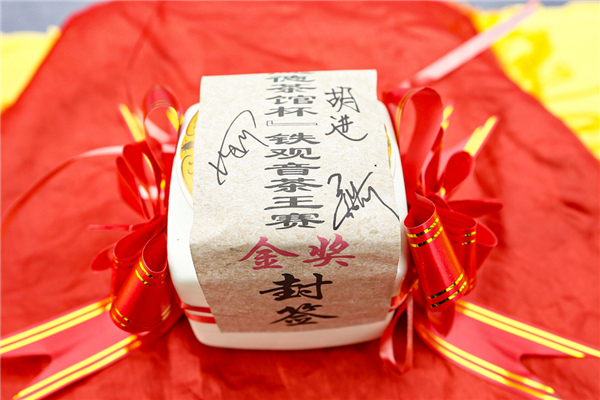 茶馆杯』铁观音茶王赛
金奖
封签
胡进